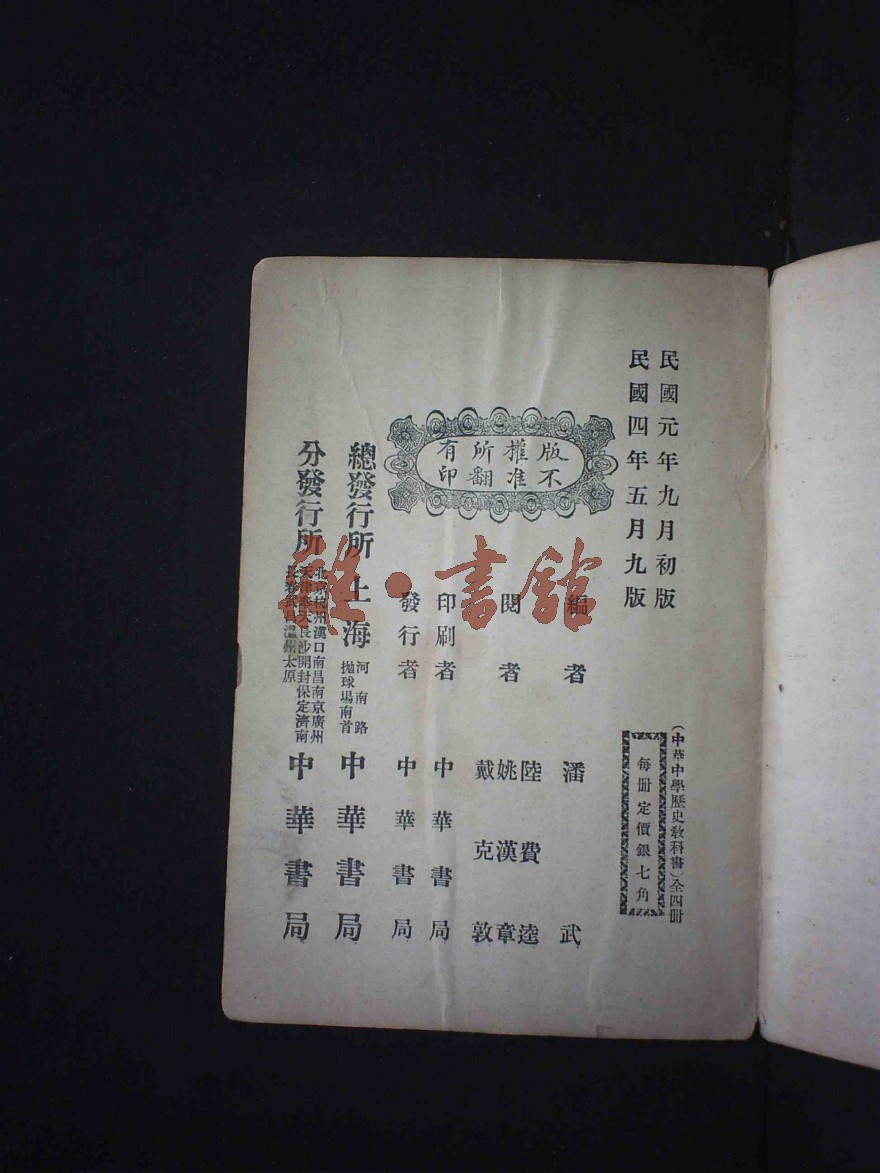 民國元年九月初版
民國四年五月九版
(中華中學歷史教科書)全四冊
每冊定價銀七角
版權所有
不准翻印
編者 潘武
閱者 陸費逵
姚漢章
戴克敦
印刷者 中華書局
發行者 中華書局
總發行所 上海 河南路拋球場南首 中華書局
分發行所 北京杭州漢口南昌南京廣州天津奉天長沙開封保定濟南長春武昌溫州太原 中華書局
雅·書館